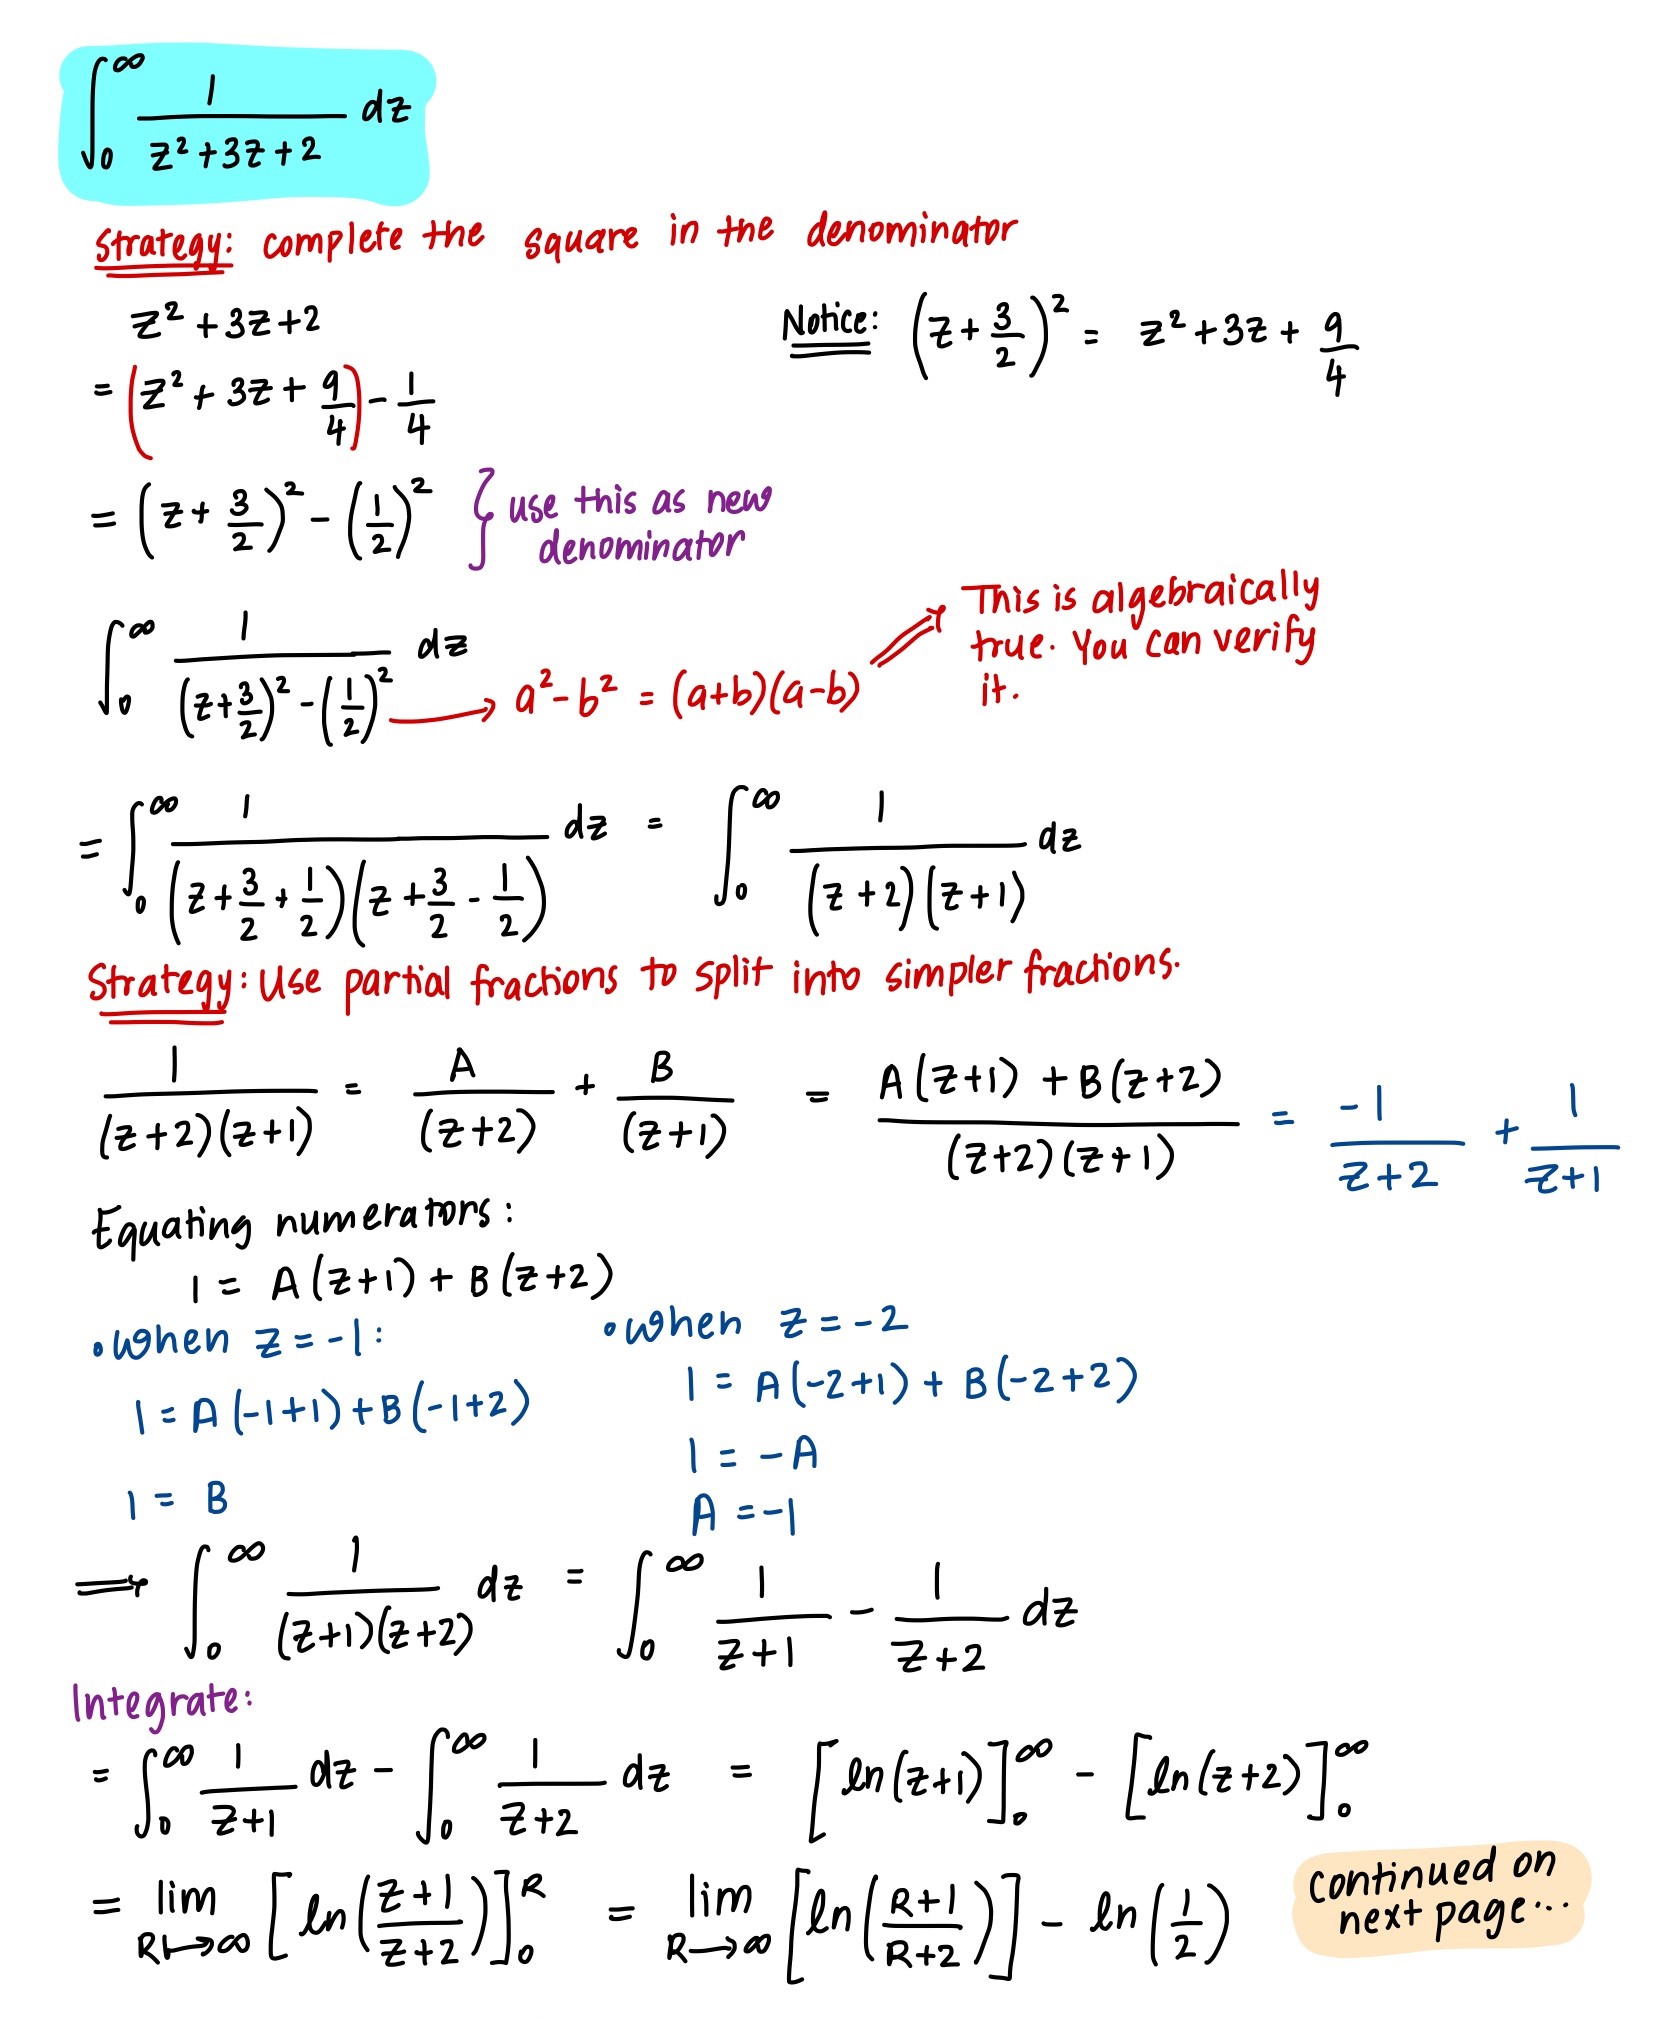 ∫₀^∞ 1/(z²+3z+2) dz
Strategy: complete the square in the denominator
z²+3z+2
Notice: (z+3/2)² = z²+3z+9/4
= (z²+3z+9/4) - 1/4
= (z+3/2)² - (1/2)² } use this as new
denominator
∫₀^∞ 1/((z+3/2)² - (1/2)²) dz → a²-b² = (a+b)(a-b)
This is algebraically
true. You can verify
it.
= ∫₀^∞ 1/((z+3/2+1/2)(z+3/2-1/2)) dz = ∫₀^∞ 1/((z+2)(z+1)) dz
Strategy: Use partial fractions to split into simpler fractions.
1/((z+2)(z+1)) = A/(z+2) + B/(z+1) = (A(z+1)+B(z+2))/((z+2)(z+1)) = -1/(z+2) + 1/(z+1)
Equating numerators:
1 = A(z+1) + B(z+2)
•when z=-1:
1 = A(-1+1)+B(-1+2)
1 = B
•when z=-2
1 = A(-2+1) + B(-2+2)
1 = -A
A = -1
⟹ ∫₀^∞ 1/((z+1)(z+2)) dz = ∫₀^∞ 1/(z+1) - 1/(z+2) dz
Integrate:
= ∫₀^∞ 1/(z+1) dz - ∫₀^∞ 1/(z+2) dz = [ln(z+1)]₀^∞ - [ln(z+2)]₀^∞
= lim R↦∞ [ln((z+1)/(z+2))]₀^R = lim R→∞ [ln((R+1)/(R+2))] - ln(1/2)
continued on
next page...